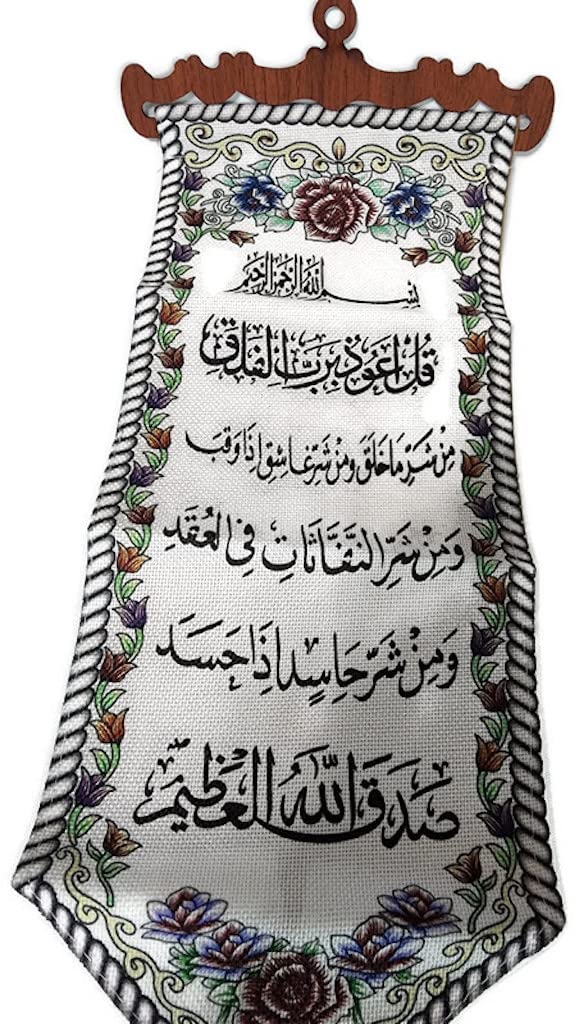 بسم الله الرحمن الرحيم
قُلْ اَعُوذُ بِرَبِّ الْفَلَقِ
مِنْ شَرِّ مَا خَلَقَ وَمِنْ شَرِّ غَاسِقٍ اِذَا وَقَبَ
وَمِنْ شَرِّ النَّفَّاثَاتِ فِي الْعُقَدِ
وَمِنْ شَرِّ حَاسِدٍ اِذَا حَسَدَ
صَدَقَ اللّٰهُ الْعَظِيمُ